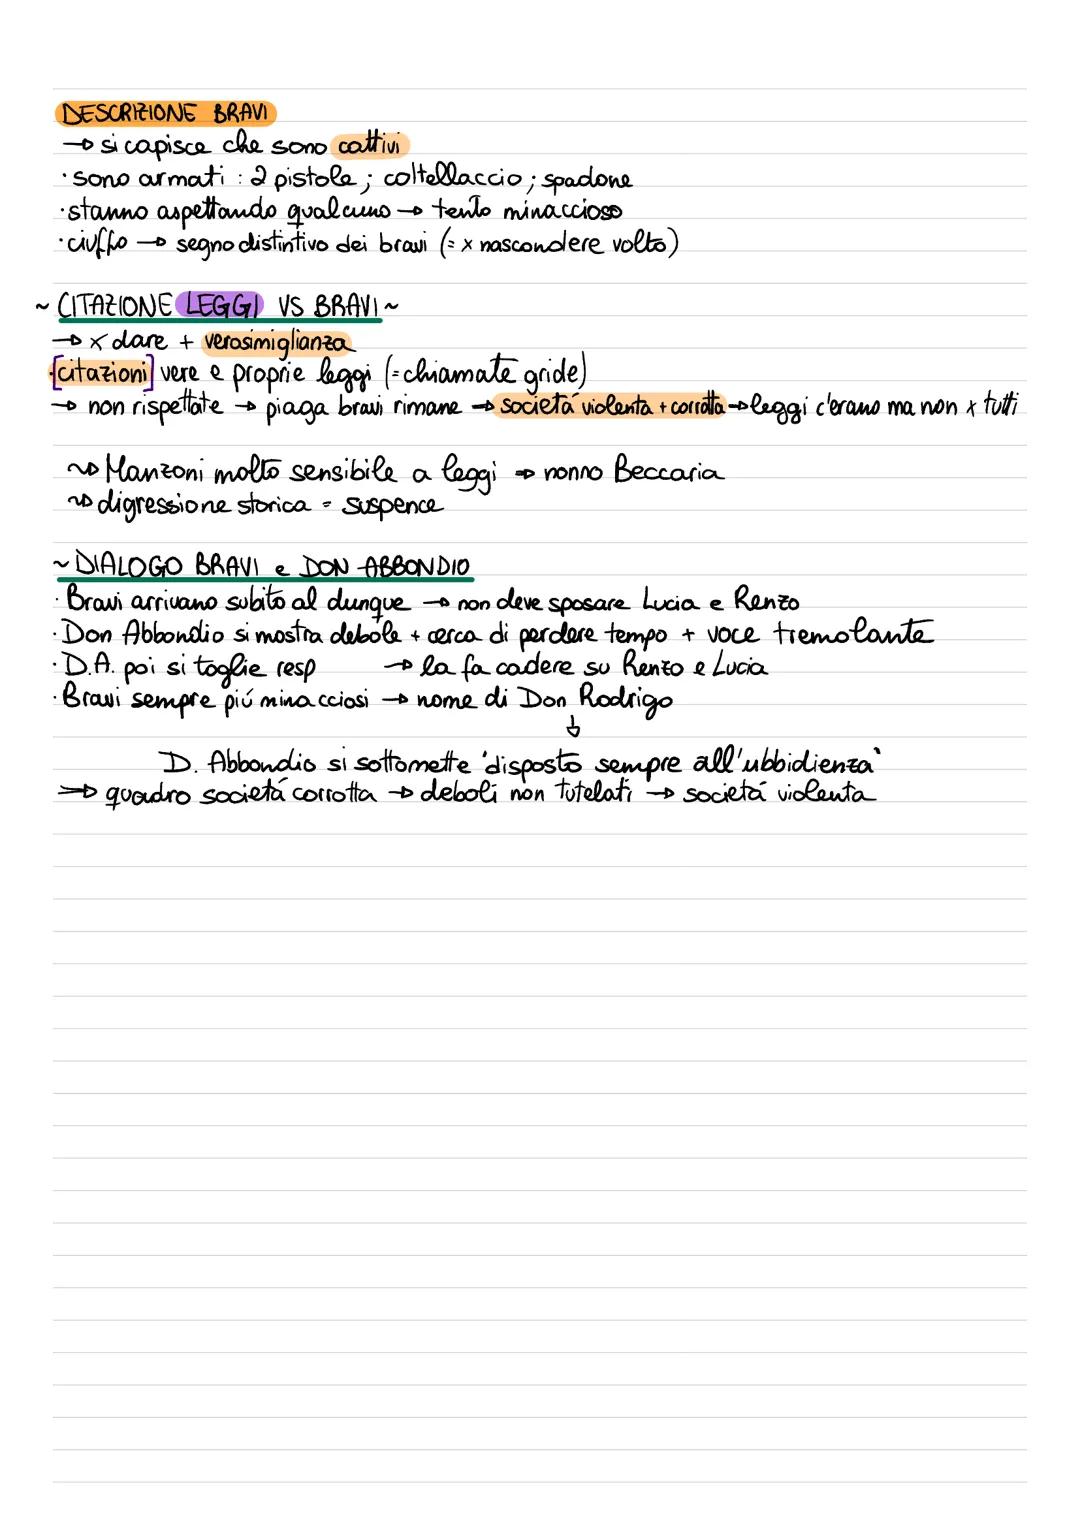 DESCRIZIONE BRAVI
→ si capisce che sono cattivi
· sono armati : 2 pistole ; coltellaccio ; spadone
· stanno aspettando qualcuno → tento minaccioso
· ciuffo → segno distintivo dei bravi (= x nascondere volto)
~ CITAZIONE LEGGI VS BRAVI ~
→ x dare + verosimiglianza
·[citazioni] vere e proprie leggi (=chiamate gride)
→ non rispettate → piaga bravi rimane → societá violenta + corrotta → leggi c'erano ma non x tutti
~> Manzoni molto sensibile a leggi → nonno Beccaria
~> digressione storica = suspence
~ DIALOGO BRAVI e DON ABBONDIO
· Bravi arrivano subito al dunque → non deve sposare Lucia e Renzo
· Don Abbondio si mostra debole + cerca di perdere tempo + voce tremolante
· D.A. poi si toglie resp → la fa cadere su Renzo e Lucia
· Bravi sempre piú minacciosi → nome di Don Rodrigo
↓
D. Abbondio si sottomette 'disposto sempre all'ubbidienza'
⇒ quadro societá corrotta → deboli non tutelati → societá violenta